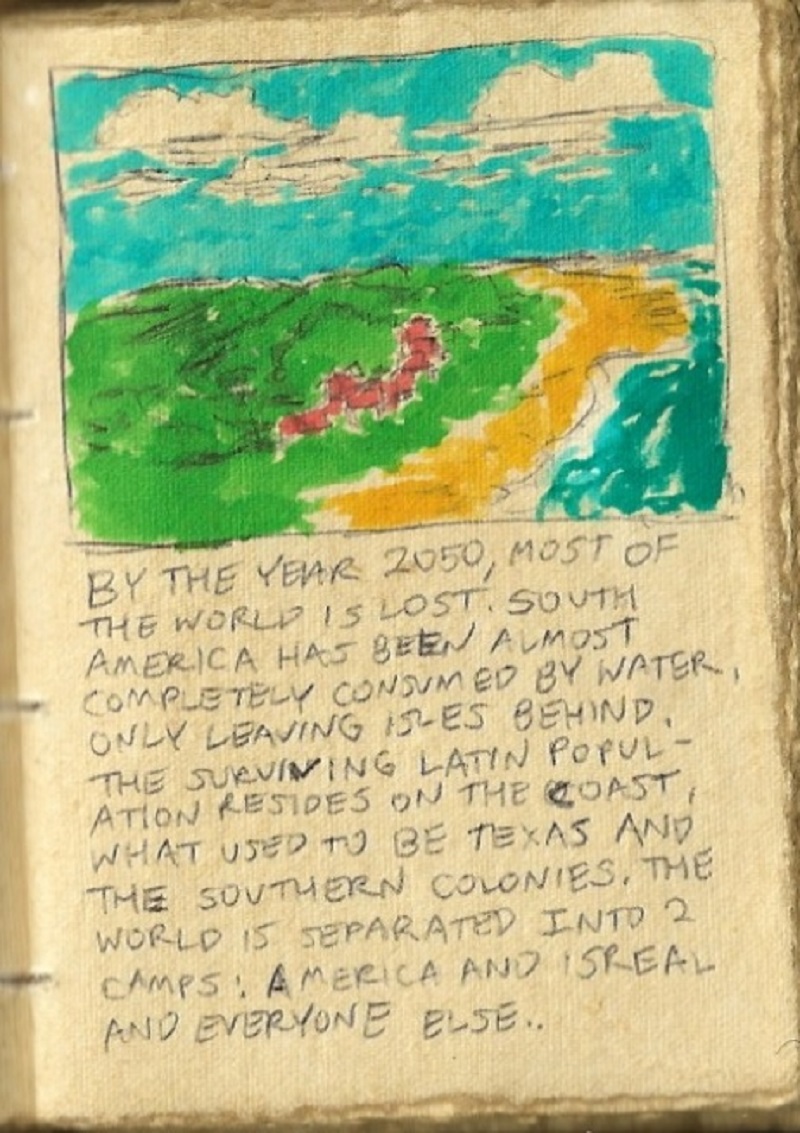 BY THE YEAR 2050, MOST OF
THE WORLD IS LOST. SOUTH
AMERICA HAS BEEN ALMOST
COMPLETELY CONSUMED BY WATER,
ONLY LEAVING ISLES BEHIND.
THE SURVIVING LATIN POPUL-
ATION RESIDES ON THE COAST,
WHAT USED TO BE TEXAS AND
THE SOUTHERN COLONIES. THE
WORLD IS SEPARATED INTO 2
CAMPS: AMERICA AND ISREAL
AND EVERYONE ELSE..